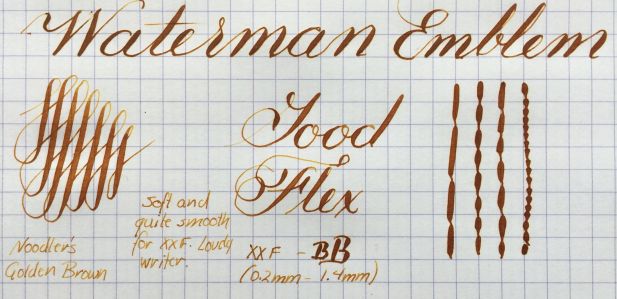 Waterman Emblem
Good
Flex
soft and
quite smooth
for XXF. Lovely
writer.
Noodler's
Golden Brown
XXF - BB
(0.2mm - 1.4mm)